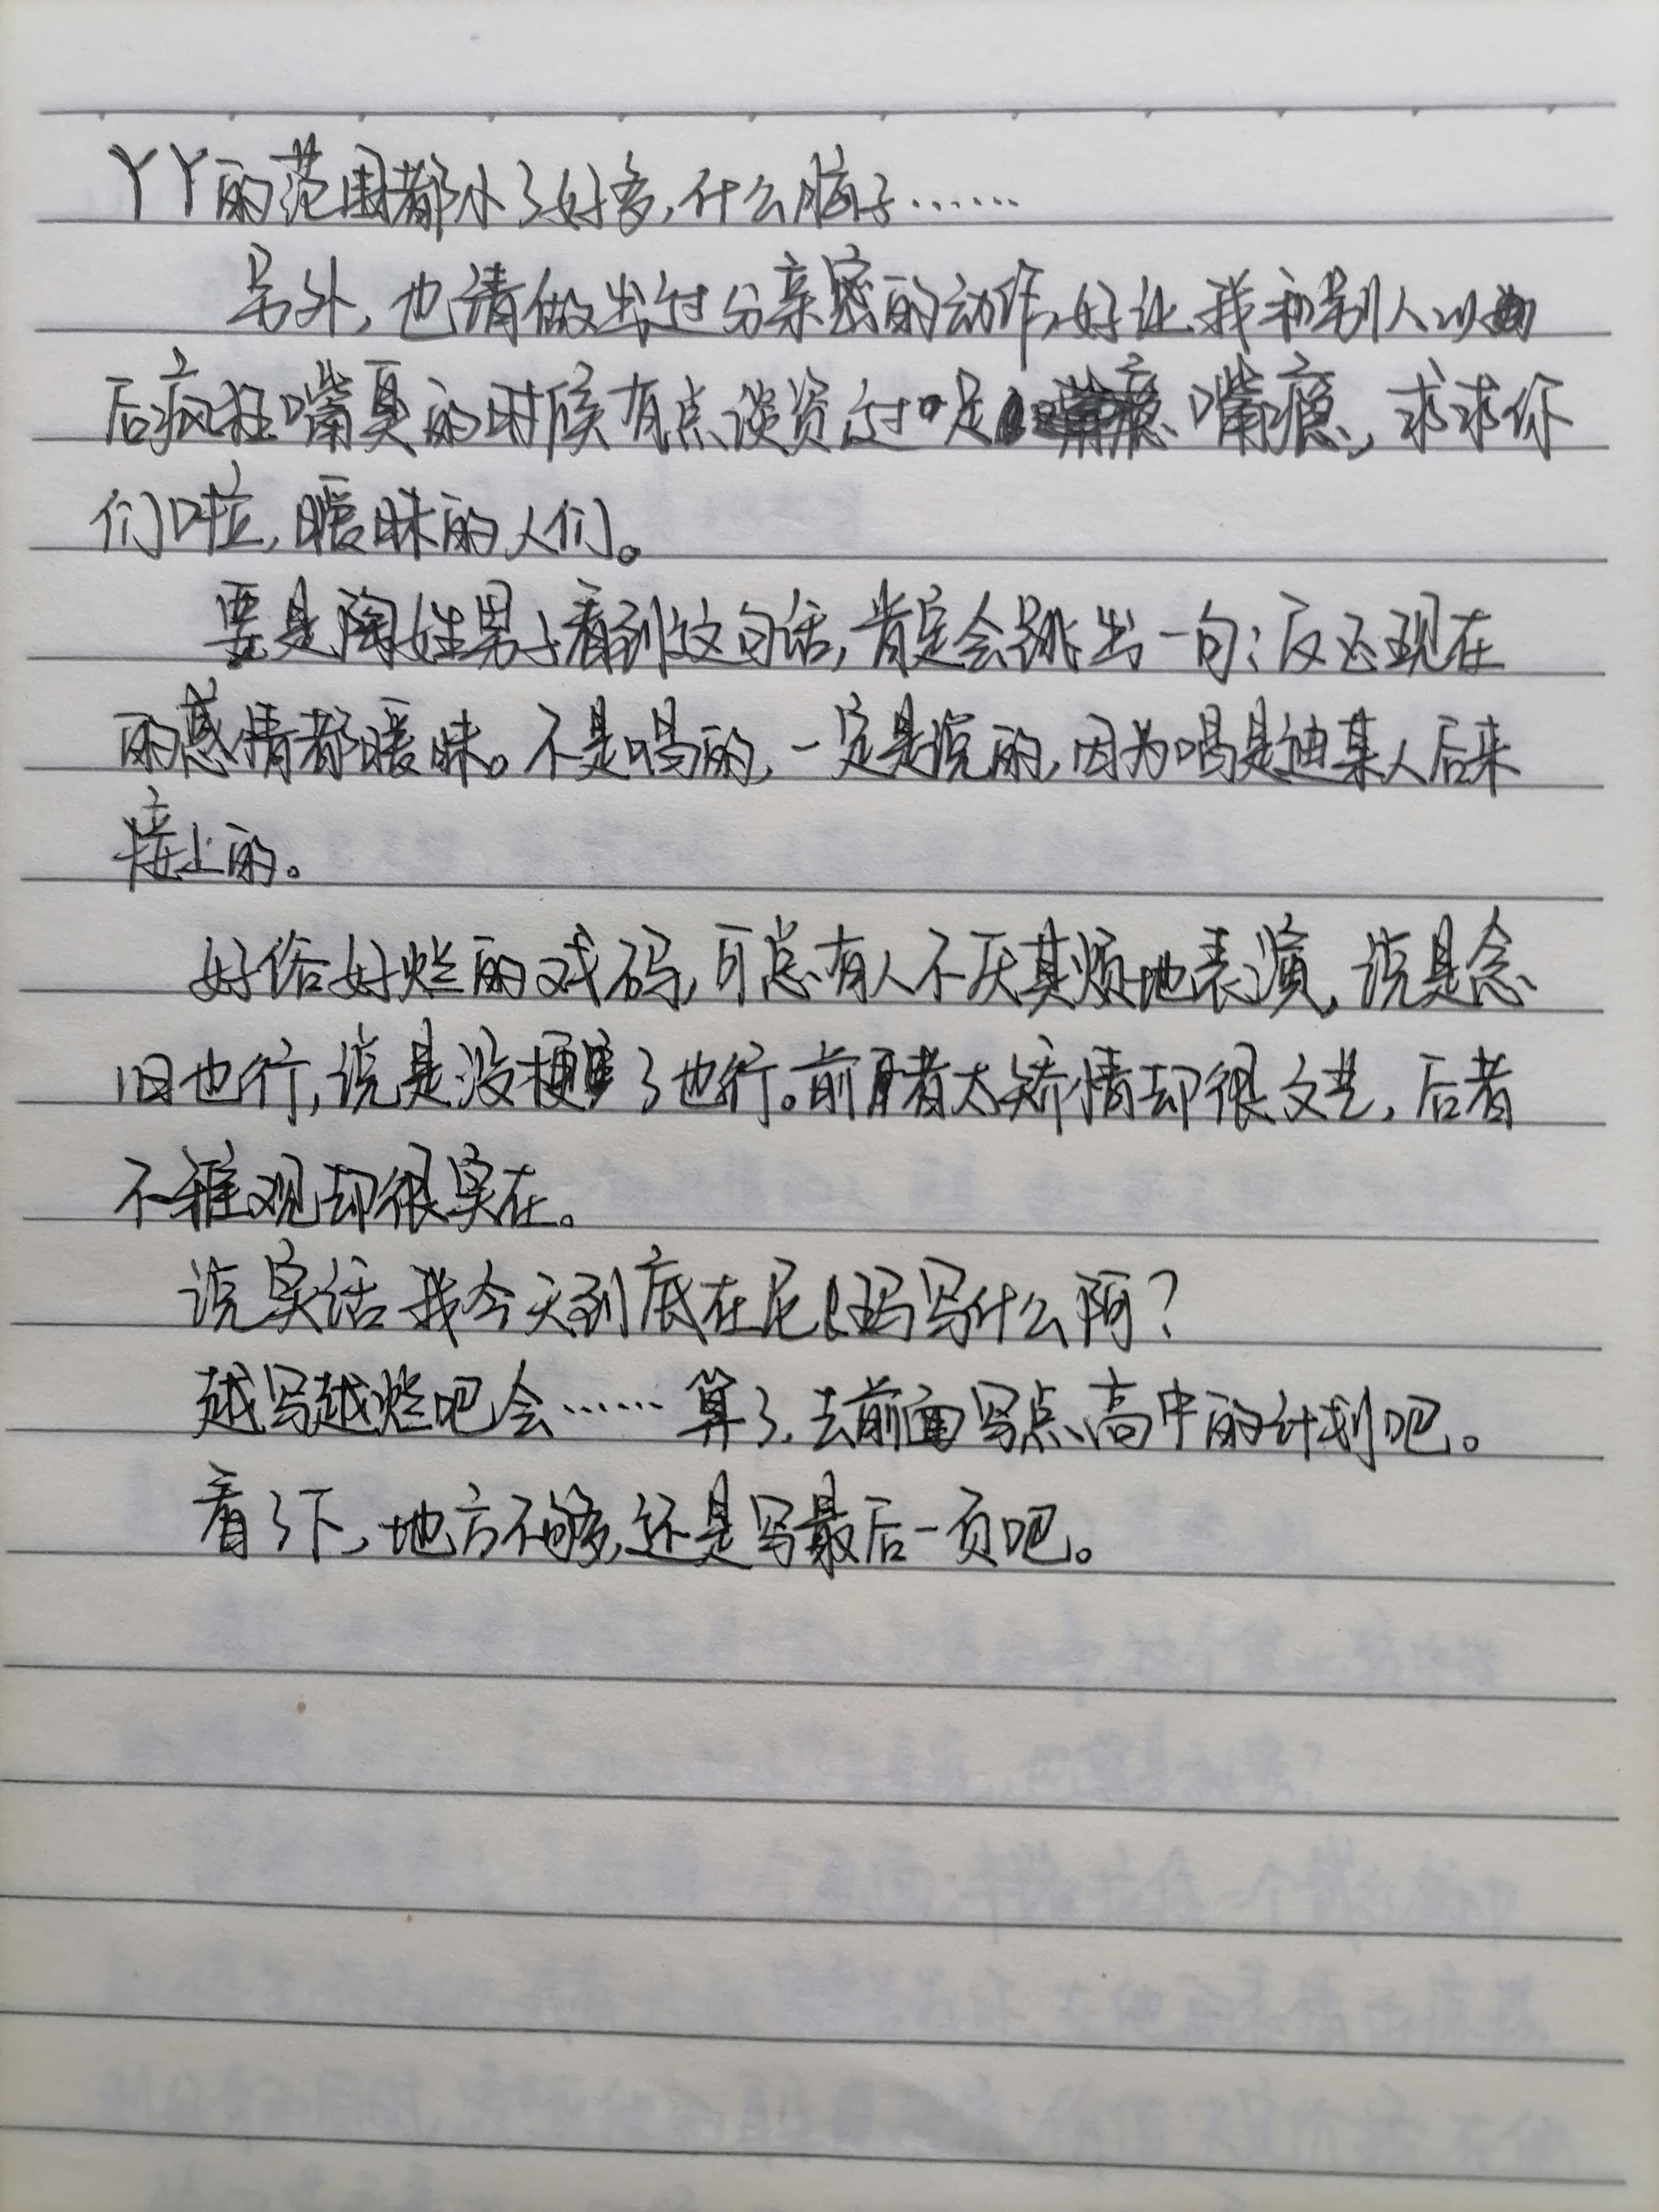 YY的范围都小了好多，什么脑子……
另外，也请做出过分亲密的动作，好让我和别人以
后疯狂嘴臭的时候有点谈资过足嘴瘾，求求你
们啦，暧昧的人们。
要是陶姓男子看到这句话，肯定会跳出一句：反正现在
的感情都暧昧。不是唱的，一定是说的，因为唱是迪某人后来
接上的。
好俗好烂的戏码，可总有人不厌其烦地表演，说是念
旧也行，说是没梗了也行。前者太矫情却很文艺，后者
不雅观却很实在。
说实话我今天到底在尼玛写什么阿？
越写越烂吧会……算了，去前面写点高中的计划吧。
看了下，地方不够，还是写最后一页吧。